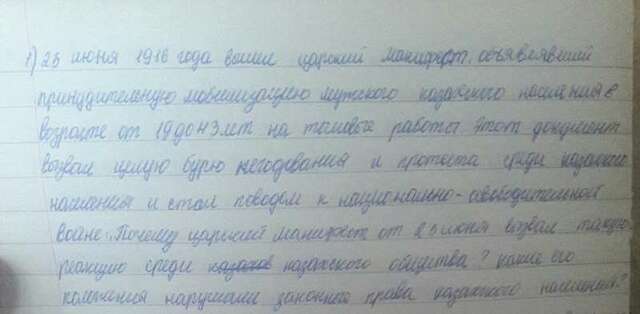 1) 25 июня 1916 года вышел царский манифест, объявлявший
принудительную мобилизацию мужского казахского населения в
возрасте от 19 до 43 лет на тыловые работы. Этот документ
вызвал целую бурю негодования и протеста среди казахского
населения и стал поводом к национально-освободительной
войне. Почему царский манифест от 25 июня вызвал такую
реакцию среди казахов казахского общества? Какие его
положения нарушали законные права казахского населения?